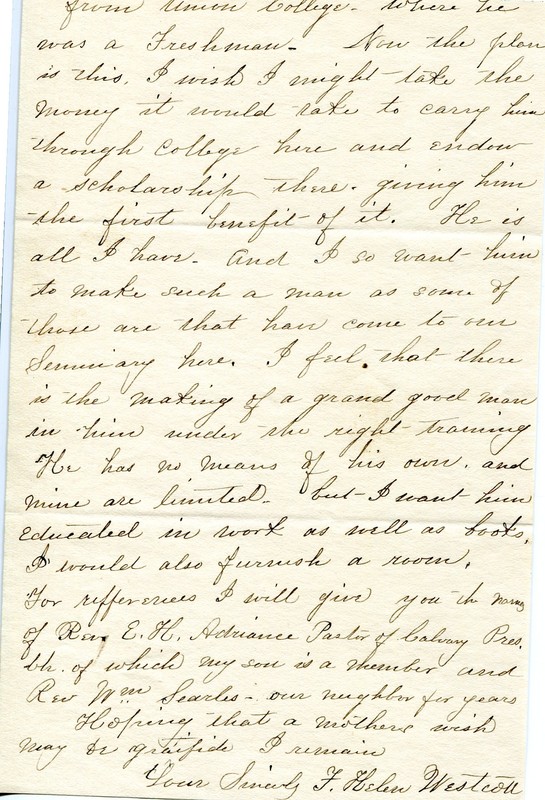 from Union College. Where he
was a Freshman - Now the plan
is this. I wish I might take the
money it would take to carry him
through College here and endow
a scholarship there. giving him
the first benefit of it. He is
all I have - And I so want him
to make such a man as some of
those are that have come to our
Seminary here. I feel that there
is the making of a grand good man
in him under the right training
He has no means of his own. and
mine are limited - but I want him
educated in work as well as books.
I would also furnish a room.
For refferences I will give you the names
of Rev. E. H. Adriance Pastor of Calvary Pres.
Ch. of which my son is a member and
Rev Wm Searles - our neighbor for years
Hoping that a mothers wish
may be gratifide I remain
Your Sincerly F. Helen Westcott